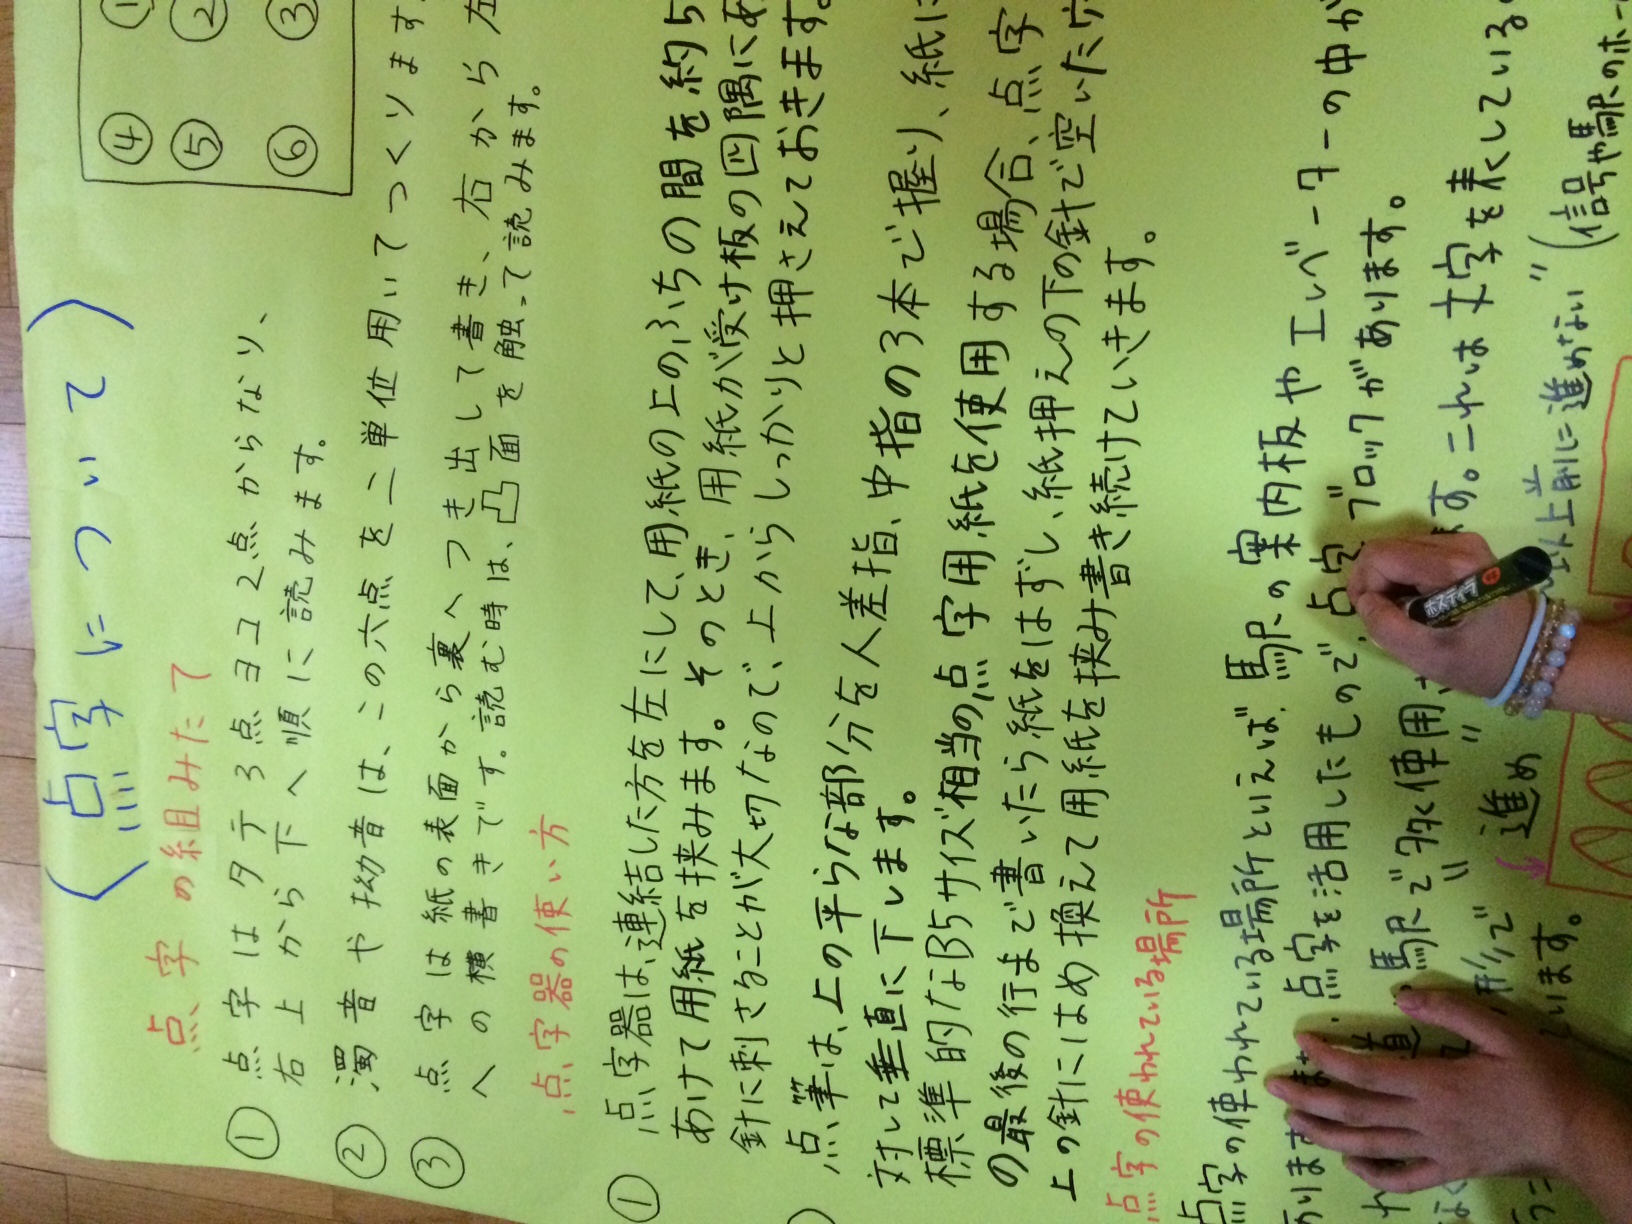 （点字について）
点字の組みたて
④ ①
⑤ ②
⑥ ③
① 点字はタテ3点ヨコ2点からなり、
右上から下へ順に読みます。
② 濁音や拗音は、この六点を二単位用いてつくります
③ 点字は紙の表面から裏へつき出して書き、右から左
への横書きです。読む時は、凸面を触って読みます。
点字器の使い方
① 点字器は、連結した方を左にして、用紙の上のふちの間を約5
あけて用紙を挟みます。そのとき、用紙が受け板の四隅にあ
針に刺さることが大切なので、上からしっかりと押さえておきます。
点筆は、上の平らな部分を人差指、中指の3本で握り、紙に
対して垂直に下します。
標準的なB5サイズ相当の点字用紙を使用する場合、点字
の最後の行まで書いたら紙をはずし、紙押えの下の針で空いた穴
上の針にはめ換えて用紙を挟み書き続けていきます。
点字の使われている場所
点字の使われている場所といえば、駅の案内板やエレベーターの中が
ありま 点字を活用したもので、点字ブロックがあります。
駅で多く使用 ます。これは文字を表している
形で "進め" 以上前に進めない" (信号や駅のホー
います。
ラディ
ポスカ